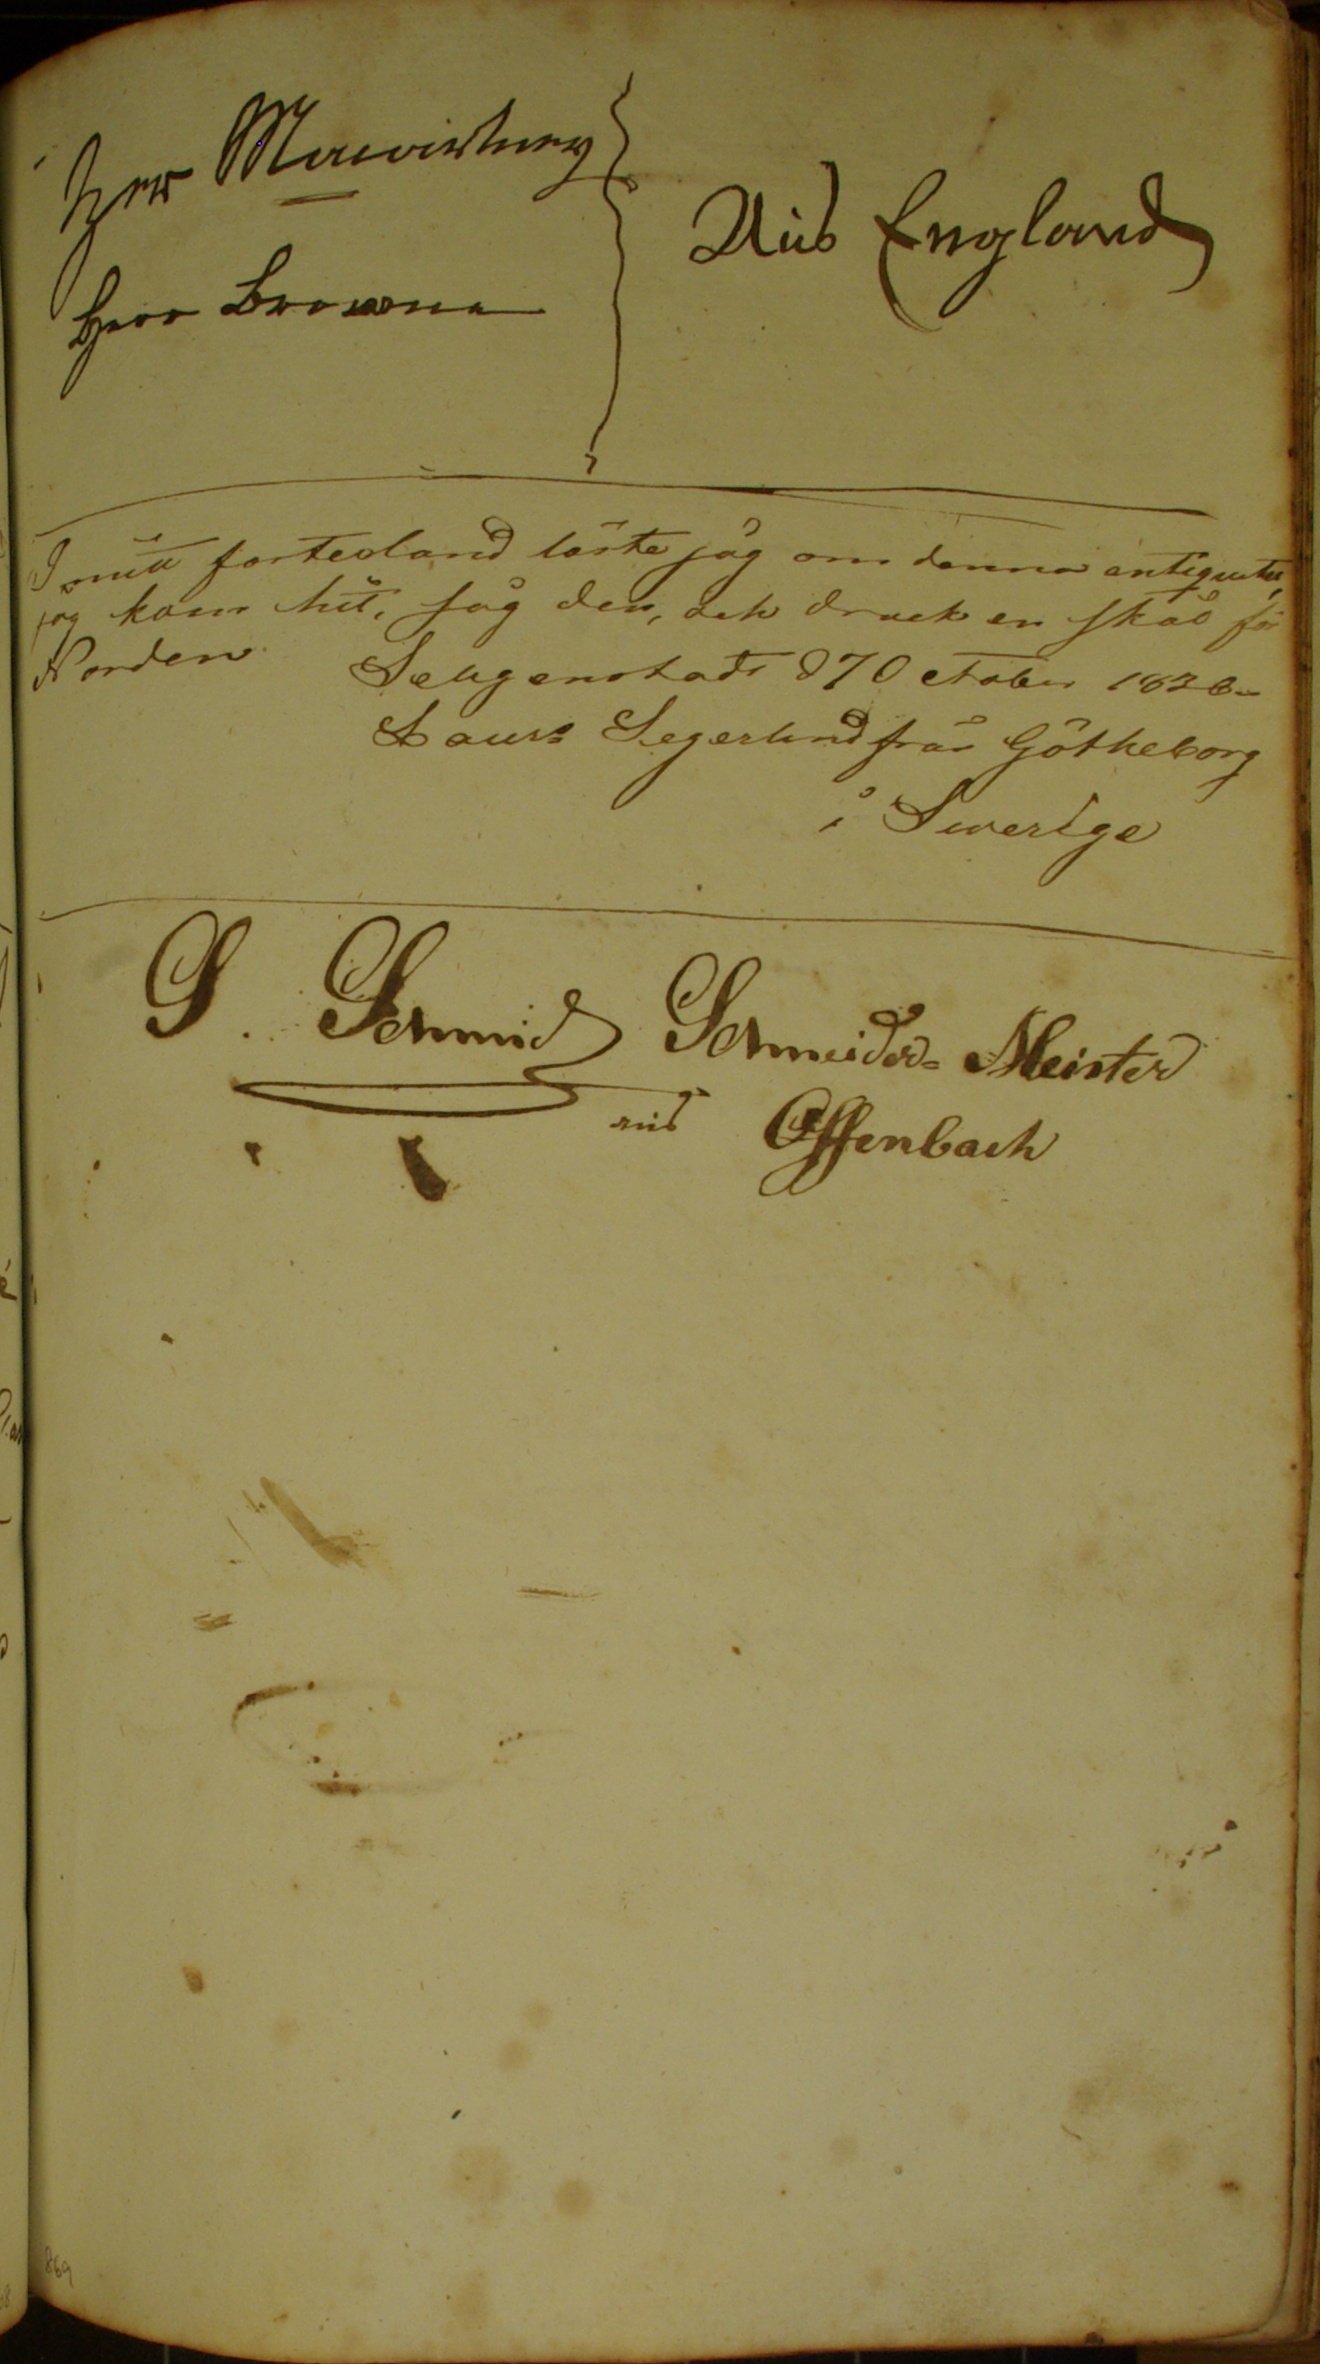 Herr
Herr Browne
Aus England
I mitt fosterland läste jag om denna antiquitet,
jag kom hit, såg den, och drack en skål för
Norden.
Seligenstadt d 7 October 183
Laurs Segerlind från Götheborg
i Swerige
S. Schmid Schneider= Meister
aus Offenbach
869